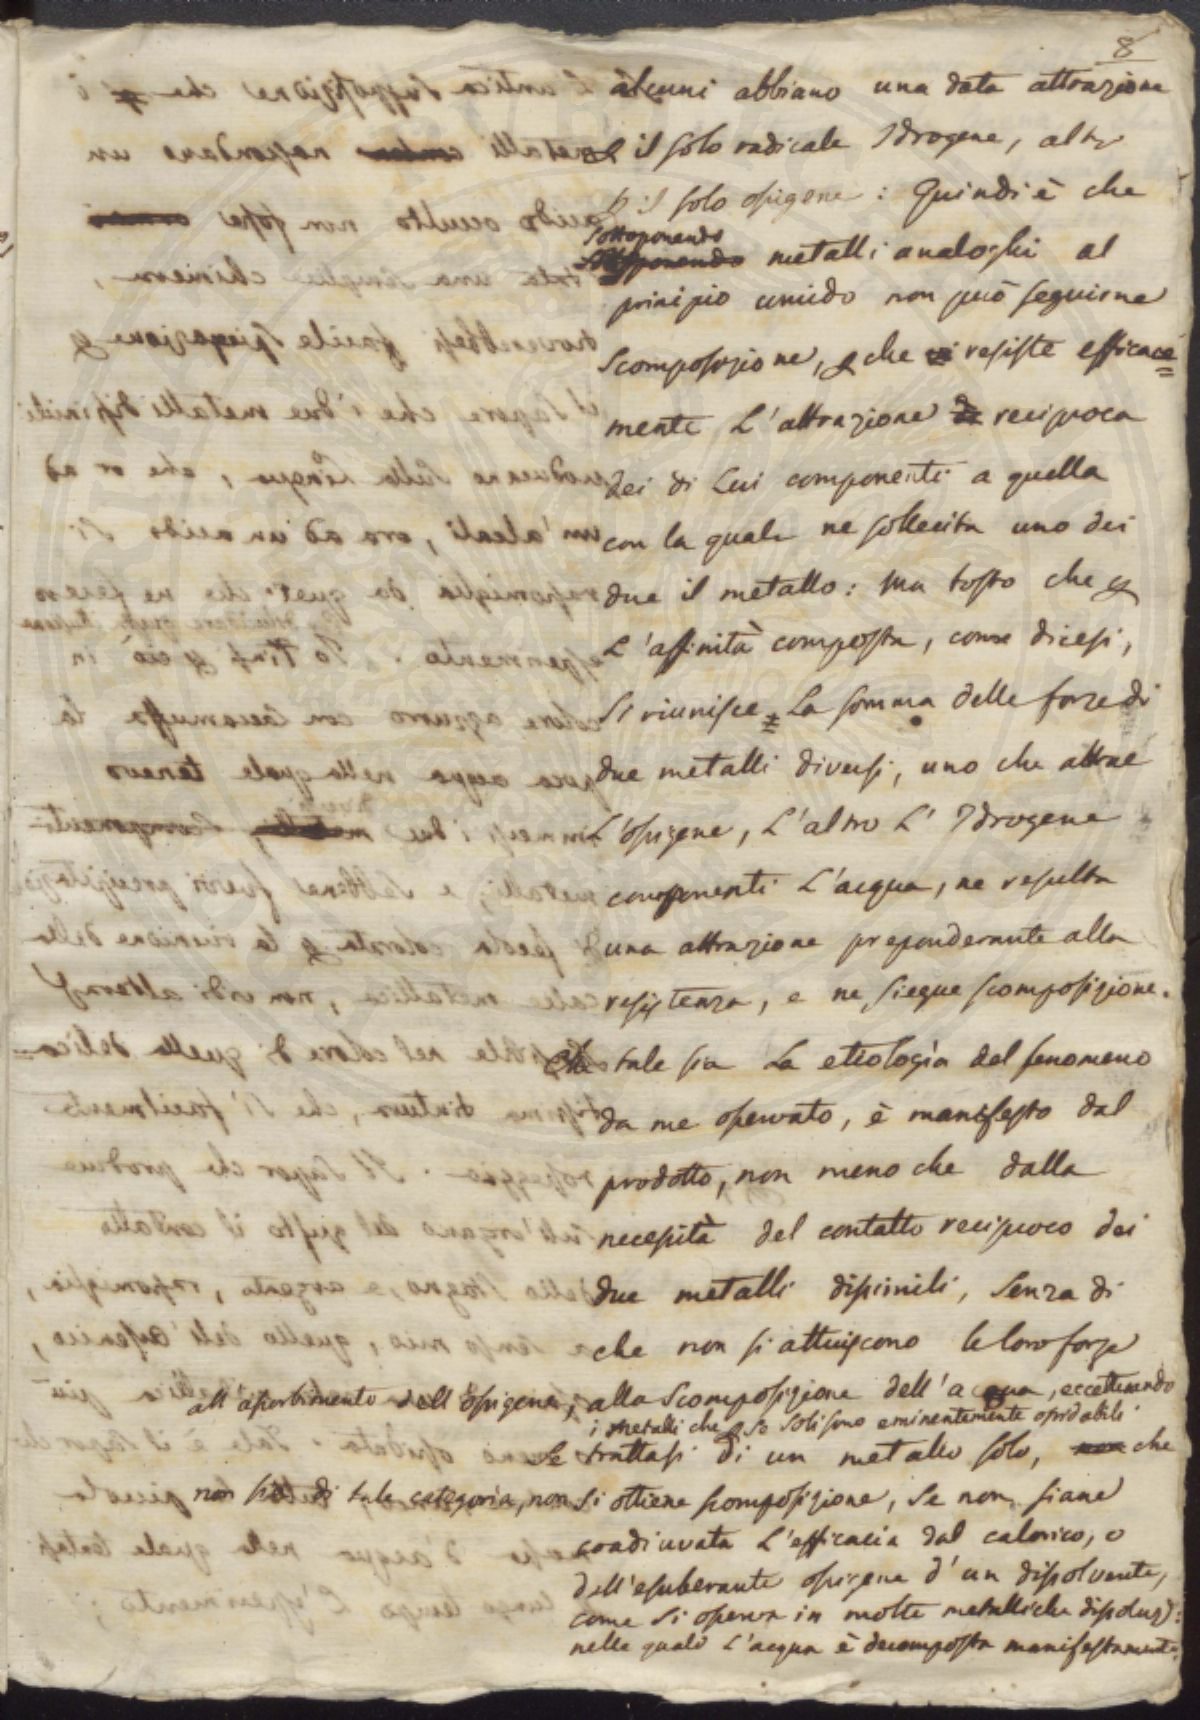 8
alcuni abbiano una data attrazione
il solo radicale Idrogene, altri
p il solo ossigene: Quindi è che
sottoponendo
sottoponendo metalli analoghi al
principio umido non può seguirne
scomposizione, che resiste efficace=
mente L'attrazione di reciproca
dei di Lui componenti a quella
con la quale ne sollecita uno dei
due il metallo: Ma tosto che p
L'affinità composta, come dicesi,
si riunisce La somma delle forze di
due metalli diversi, uno che attrae
L'ossigene, L'altro L'Idrogene
componenti L'acqua, ne resulta
una attrazione preponderante alla
resistenza, e ne siegue scomposizione.
Che tale sia La etiologia del fenomeno
da me osservato, è manifesto dal
prodotto, non meno che dalla
necessità del contatto reciproco dei
due metalli dissimili, senza di
che non si attuiscono le loro forze
all'assorbimento dell'ossigene, alla scomposizione dell'acqua, eccettuando
i metalli che p se soli sono eminentemente ossidabili
Se trattasi di un metallo solo, non che
non sia di tale categoria, non si ottiene scomposizione, se non siane
coadiuvata L'efficacia dal calorico, o
dall'esuberante ossigene d'un dissolvente,
come si osserva in molte metalliche dissoluz:
nelle quali L'acqua è decomposta manifestamente.